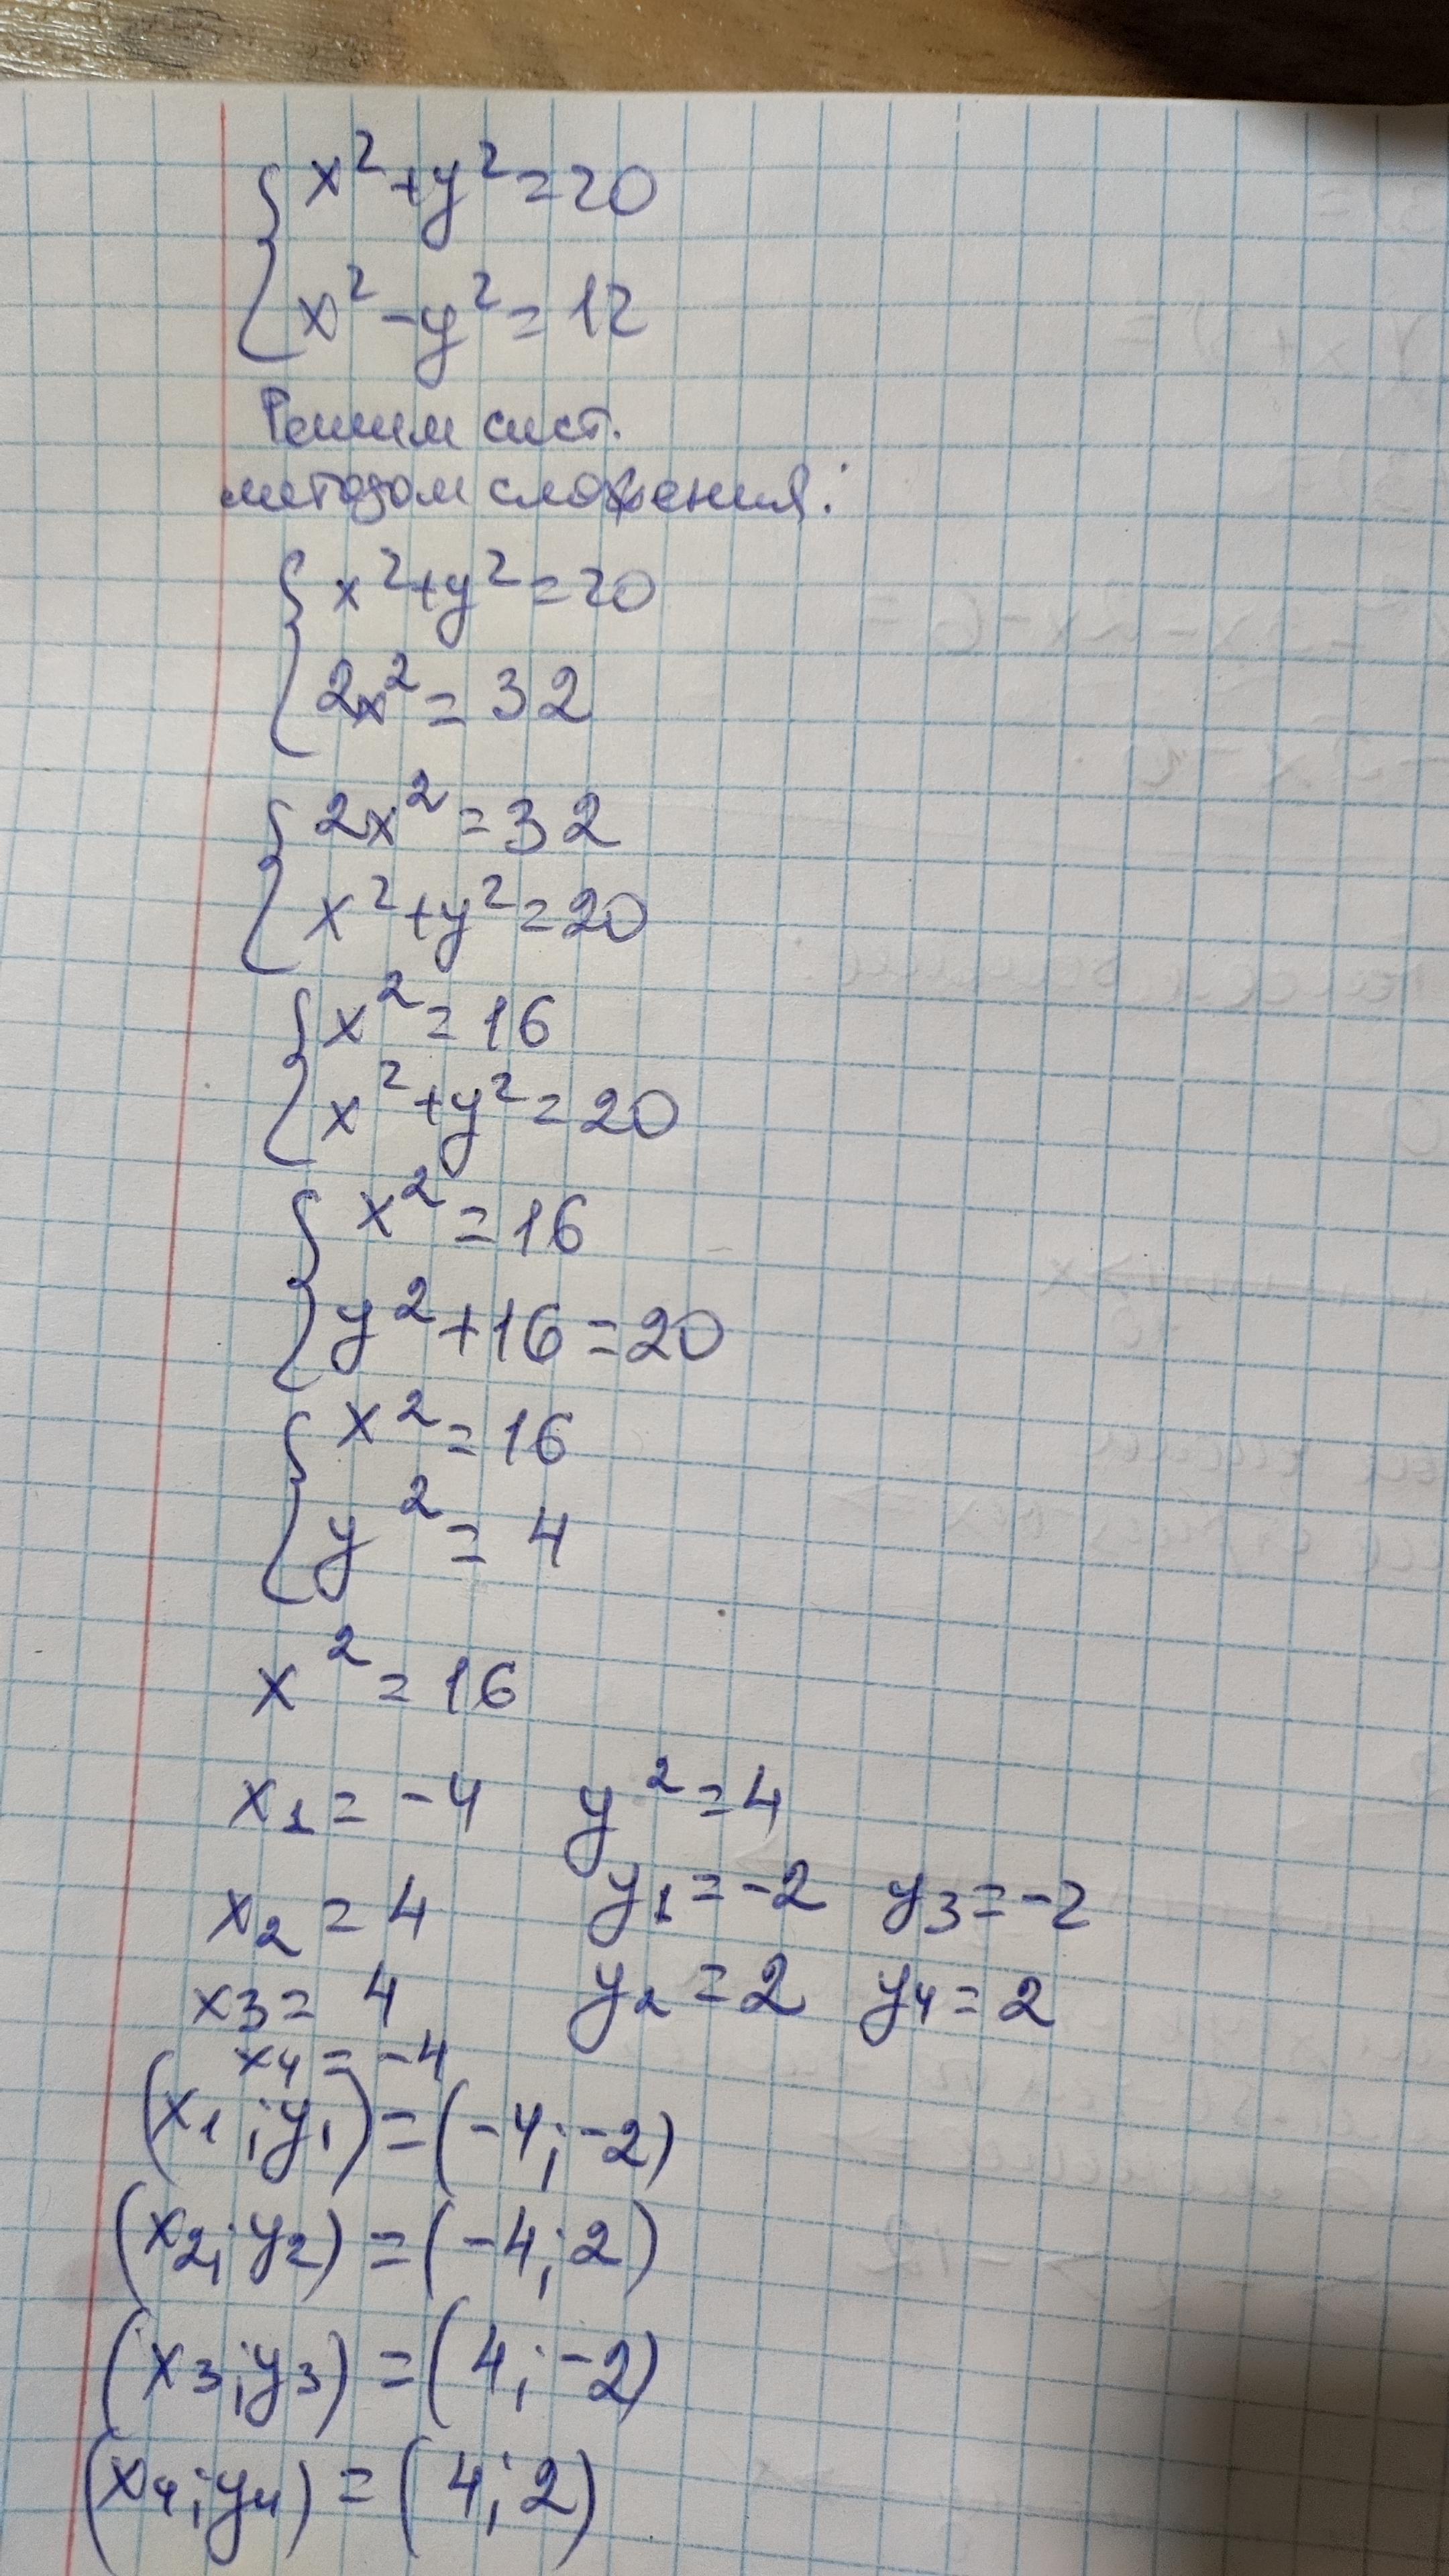 x²+y²=20
x²-y²=12
Решим сист.
методом сложения:
x²+y²=20
2x²=32
2x²=32
x²+y²=20
x²=16
x²+y²=20
x²=16
y²+16=20
x²=16
y²=4
x²=16
x₁=-4 y²=4
x₂=4 y₁=-2 y₃=-2
x₃=4 y₂=2 y₄=2
x₄=-4
(x₁;y₁)=(-4;-2)
(x₂;y₂)=(-4;2)
(x₃;y₃)=(4;-2)
(x₄;y₄)=(4;2)